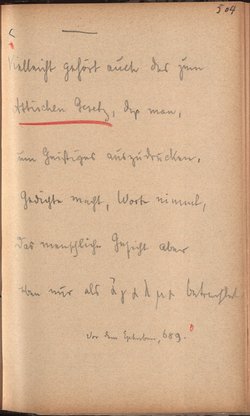 504
Vielleicht gehört auch das zum
Attischen Gesetz, daß man,
um Geistiges auszudrücken,
Gedichte macht, Worte nimmt,
das menschliche Gesicht aber
eben nur als betrachtet
689.